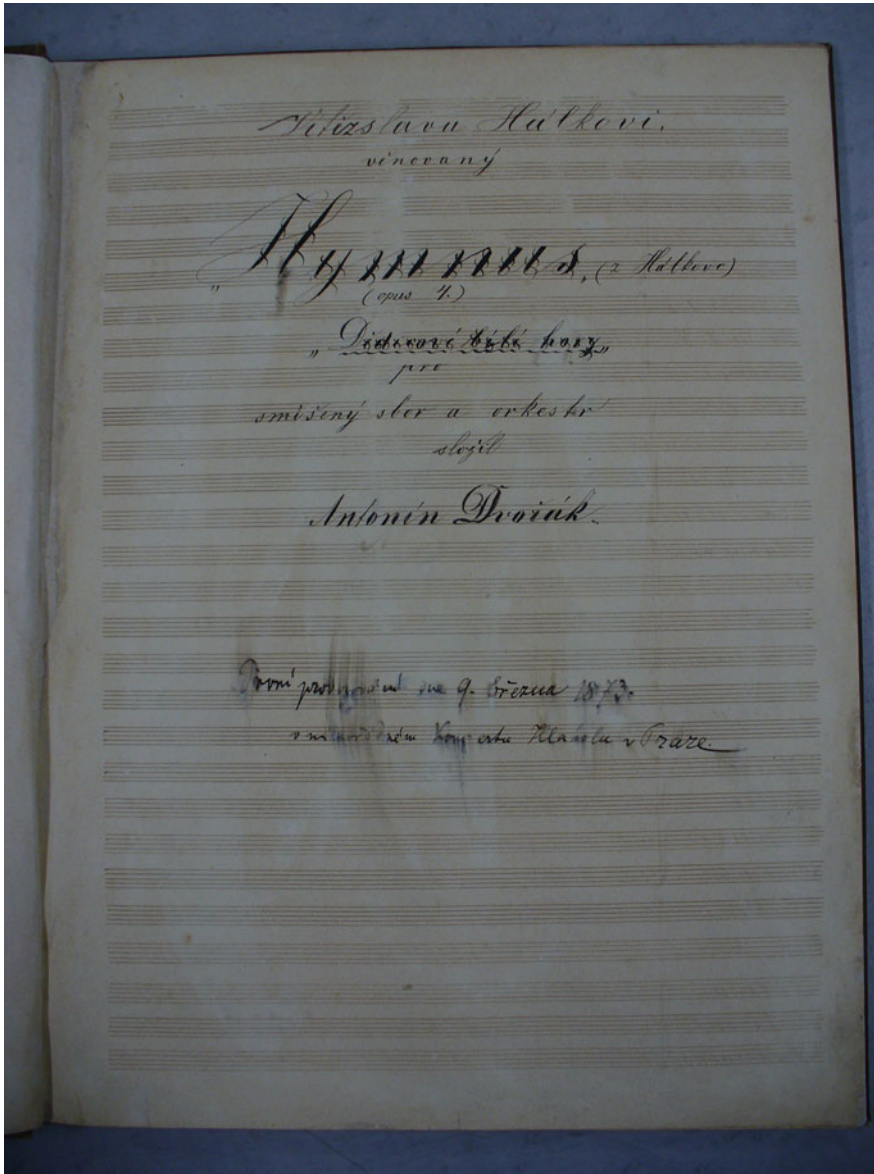 Vítězslavu Hálkovi.
věnovaný
„Hymnus, (z Hálkovo)
(opus 4.)
„Dědicové bílé hory„
pro
smíšený sbor a orkestr
složil
Antonín Dvořák.
První provozování dne 9. března 1873.
v mimořádném Koncertu Hlaholu v Praze.